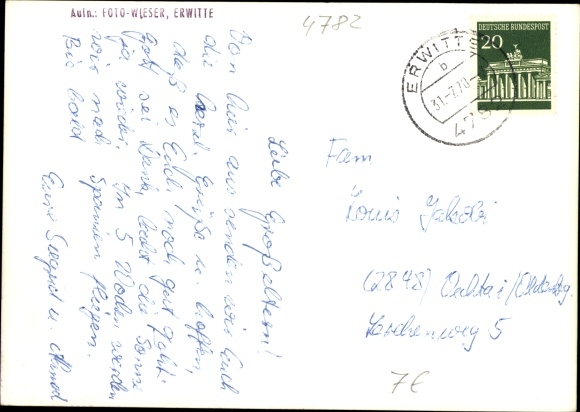 Aufn.: FOTO-WIESER, ERWITTE
4782
DEUTSCHE BUNDESPOST
20
ERWITTE
b
31.-7.70
4782
Liebe Großeltern!
Von hier aus senden wir Euch
die herzl. Grüße u. hoffen,
daß es Euch noch gut geht.
Gott sei Dank, lacht die Sonne
ja wieder. In 5 Wochen werden
wir nach Spanien fliegen.
Bis bald
Eure Siegrid u.
Fam
Louis Jakobi
(2848) Vechta i/Oldenbg.
5
7€